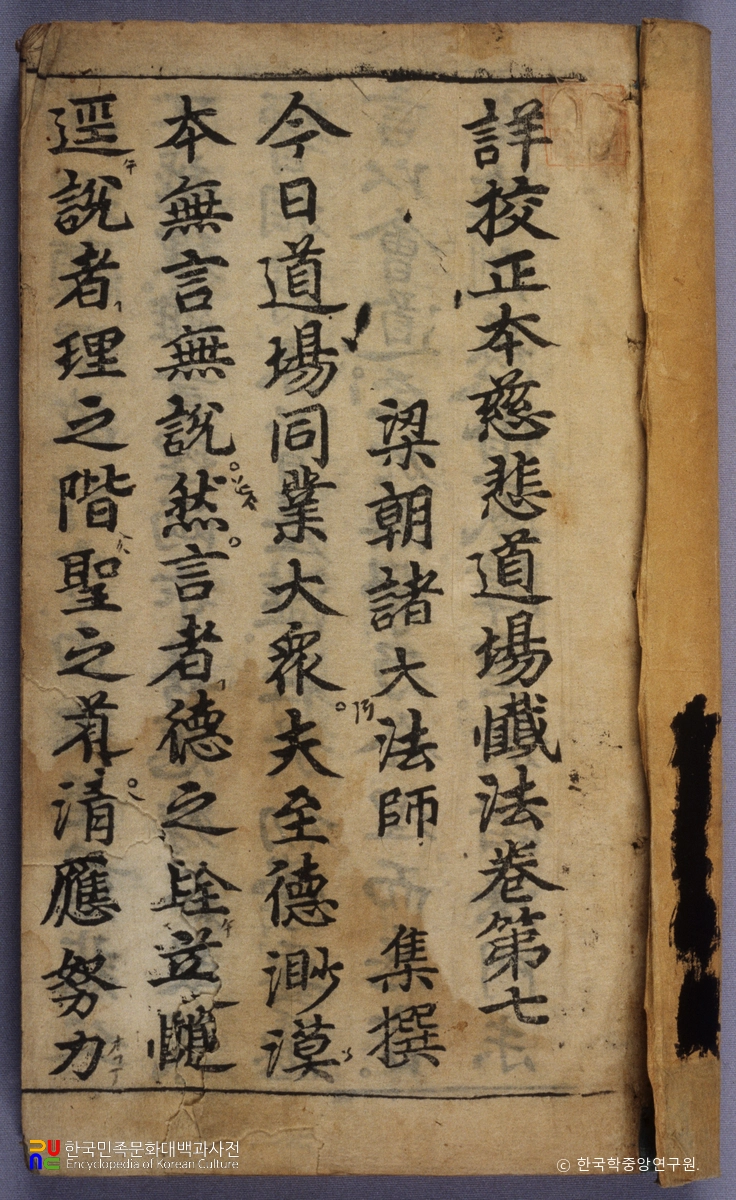 詳校正本慈悲道場懺法卷第七
梁朝諸大法師 集撰
今日道場同業大衆夫至德渺漠
本無言無說然言者德之詮
逕說者理之階聖之
한국민족문화대백과사전
Encyclopedia of Korean Culture
© 한국학중앙연구원.